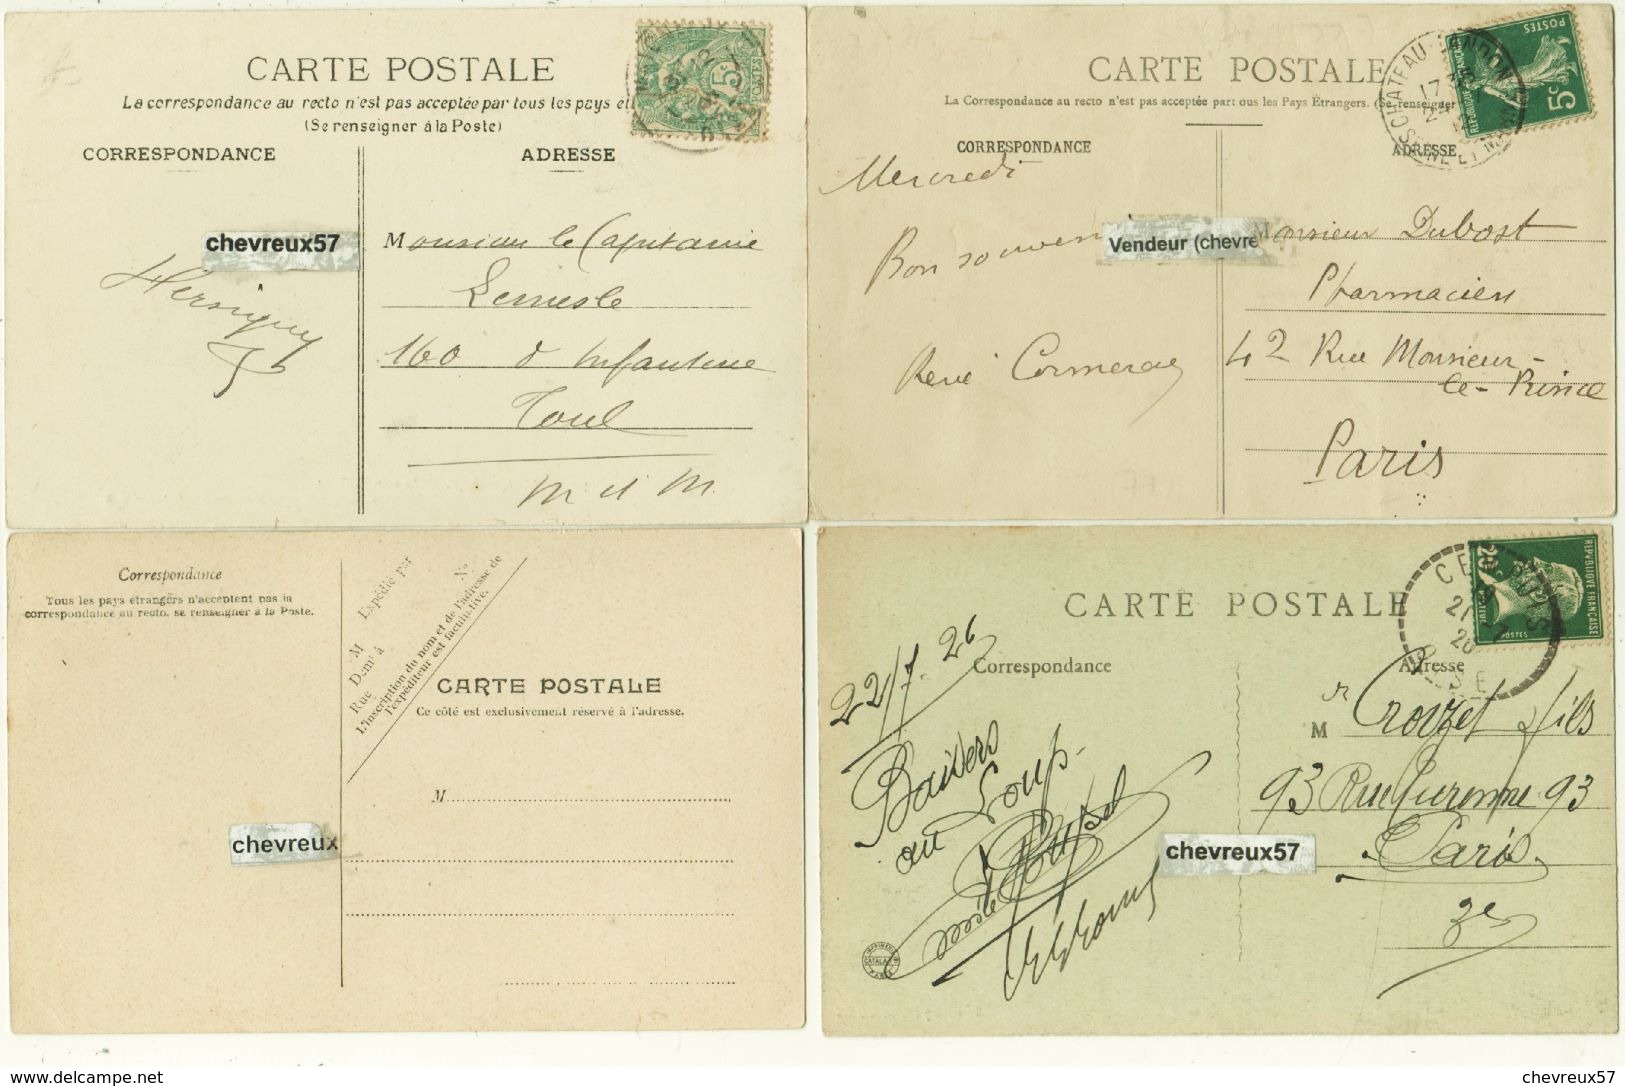 CARTE POSTALE
La correspondance au recto n'est pas acceptée par tous les pays et
(Se renseigner à la Poste)
CORRESPONDANCE
ADRESSE
5c
chevreux57
Monsieur le Capitaine
Lemesle
160 d'Infanterie
Toul
M et M
CARTE POSTALE
La Correspondance au recto n'est pas acceptée part ous les Pays Étrangers. (Se renseigner
CORRESPONDANCE
ADRESSE
CHATEAU-LANDON
SEINE ET MARNE
17
POSTES
5c
REPUBLIQUE FRANÇAISE
Mercredi
Bon souvenir
Vendeur (chevre
René
Monsieur Dubost
Pharmacien
42 Rue Monsieur-
le-Prince
Paris
Correspondance
Tous les pays étrangers n'acceptent pas la
correspondance au recto, se renseigner à la Poste.
Expédié par
M
Demt à
Rue
No
L'inscription du nom et de l'adresse de
l'expéditeur est facultative.
CARTE POSTALE
Ce côté est exclusivement réservé à l'adresse.
M
chevreux
CARTE POSTALE
Correspondance
Adresse
REPUBLIQUE FRANÇAISE
POSTES
22/7. 26
Baisers
au Loup
M
Crozet fils
93 Rue Turenne 93
Paris
3e
chevreux57
www.delcampe.net
chevreux57